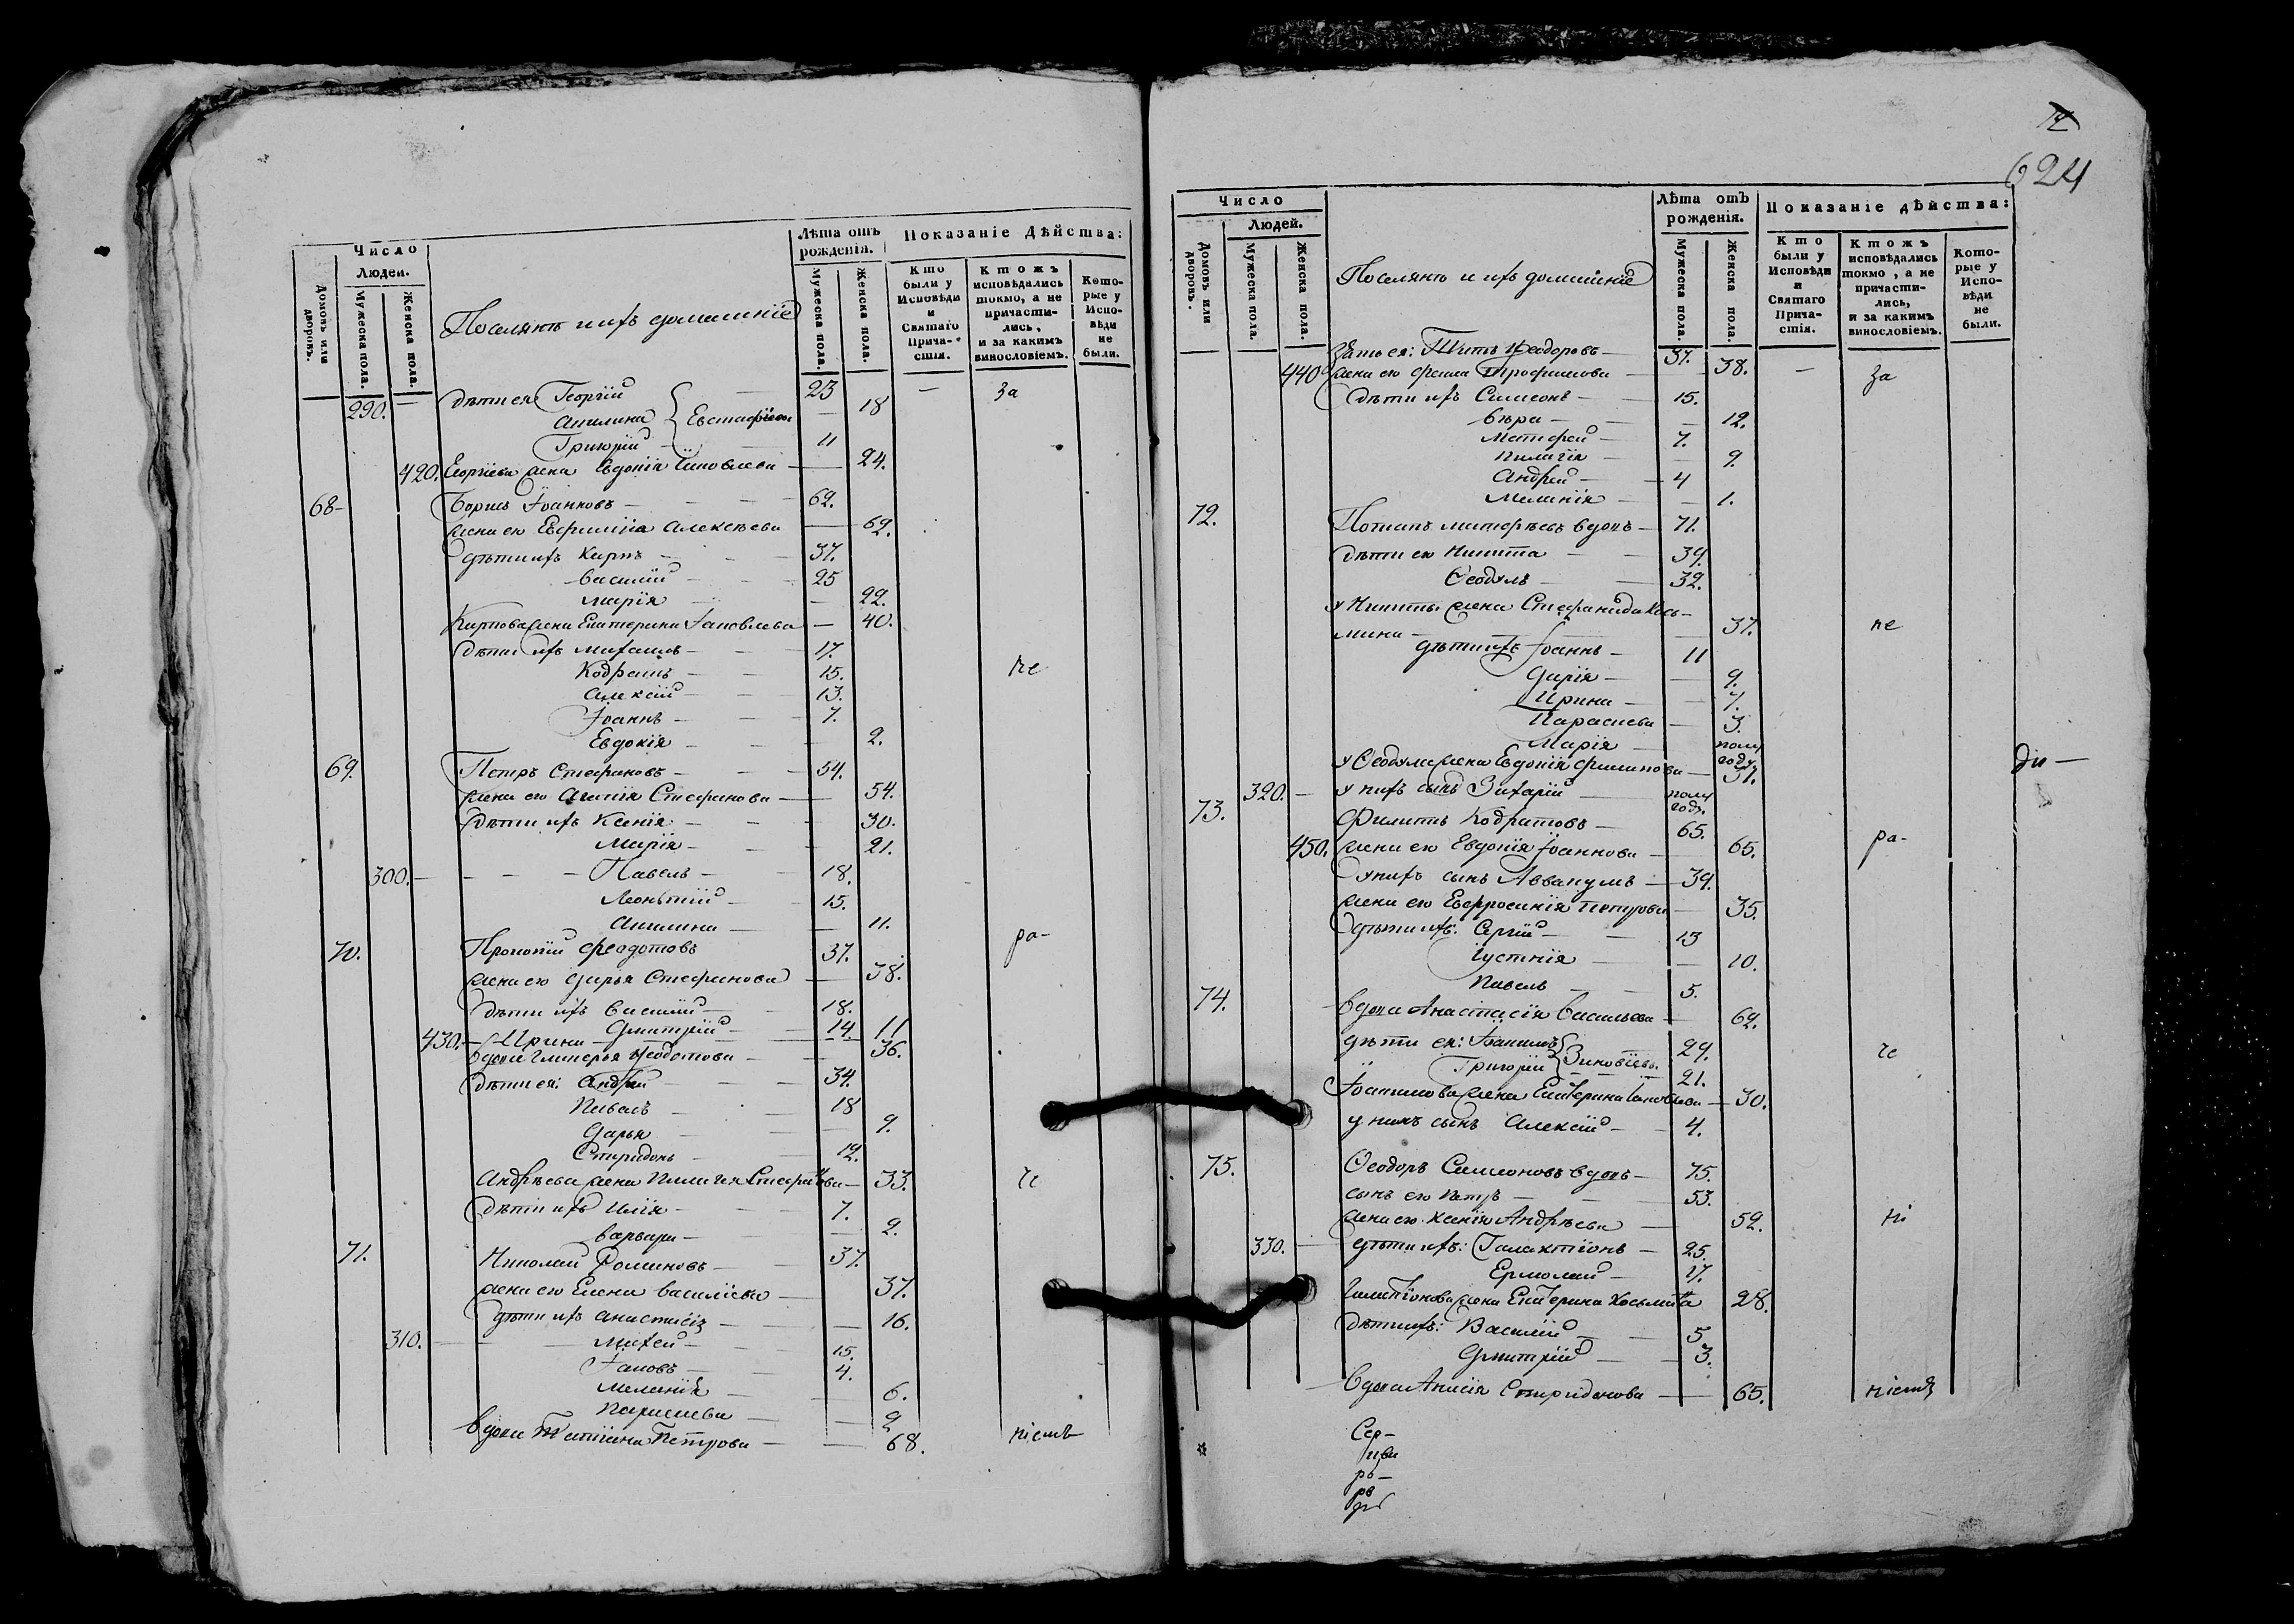 Число
Людей.
Домовъ или дворовъ.
Мужеска пола.
Женска пола.
Поселянъ и ихъ домашнiе
Лѣта отъ рожденiя.
Мужеска пола.
Женска пола.
Показанiе Дѣйства:
Кто были у Исповѣди и Святаго Причастiя.
Ктожъ исповѣдались токмо, а не причастились, и за какимъ винословiемъ.
Которые у Исповѣди не были.
290. — дѣти ея Георгiй — 23 — за
Акилина — 18
Евстафiевы
Григорiй — 11
420. Георгiева жена Евдокiя Iаковлева — 24.
68 — Борисъ Iоанновъ — 62.
жена его Евфимiа Алексѣева — 62.
дѣти ихъ Карпъ — 37.
Василiй — 25
Марiя — 22.
Карпова жена Екатерина Iаковлева — 40.
дѣти ихъ Михаилъ — 17.
Кодратъ — 15. че
Алексiй — 13.
Iоаннъ — 7.
Евдокiя — 2.
69. Петръ Стефановъ — 54.
жена его Агапiя Стефанова — 54.
дѣти ихъ Ксенiя — 30.
Марiя — 21.
300. — Павелъ — 18.
Леонтiй — 15.
Акилина — 11.
70. Прокопiй Феодотовъ 37. ра-
жена его Дарья Стефанова — 38.
дѣти ихъ Василiй — 18.
Дмитрiй — 14.
430. — Ирина — 11
вдова Гликерья Феодотова — 36.
дѣти ея: Андрей — 34.
Павелъ — 18
Дарья — 9.
Спиридонъ — 12.
Андрѣева жена Пелагея Стефанова — 33. че
дѣти ихъ Илiя — 7.
Варвара — 2.
71. Николай Романовъ — 37.
жена его Елена Василiева — 37.
дѣти ихъ Анастасiя — 16.
310. — Михей — 15.
Iаковъ — 4.
Меланiя — 6.
Параскева — 2
вдова Татiана Петрова — 68. нiемъ
624
Число
Людей.
Домовъ или дворовъ.
Мужеска пола.
Женска пола.
Поселянъ и ихъ домашнiе
Лѣта отъ рожденiя.
Мужеска пола.
Женска пола.
Показанiе дѣйства:
Кто были у Исповѣди и Святаго Причастiя.
Ктожъ исповѣдались токмо, а не причастились, и за какимъ винословiемъ.
Которые у Исповѣди не были.
Зять ея: Титъ Феодоровъ — 37.
440 жена его Фекла Трофимова — 38. — за
дѣти ихъ Симеонъ — 15.
Вѣра — 12.
Матфей — 7.
Пелагiя — 9.
Андрей — 4
Меланiя — 1.
72. Потапъ Матфѣевъ вдовъ — 71.
дѣти его Никита — 39.
Ѳеодулъ — 32.
у Никиты жена Стефанида Кось-
мина — 37. че
дѣти ихъ Iоаннъ — 11
Дарiя — 9.
Ирина — 7.
Параскева — 3.
Марiя — полу году
у Ѳеодула жена Евдокiя Филипова — 31. ди —
320. — у нихъ сынъ Захарiй — полу году.
73. Филипъ Кодратовъ — 65.
450. жена его Евдокiя Iоаннова — 65. ра-
у нихъ сынъ Аввакумъ — 39.
жена его Евфросинiя Петрова — 35.
дѣти ихъ: Сергiй — 13
Iустинiя — 10.
Павелъ — 5.
74. вдова Анастасiя Васильева — 62.
дѣти ея: Iоакимъ — 29. че
Зиновiевы.
Григорiй — 21.
Iоакимова жена Екатерина Iаковлева — 30.
у нихъ сынъ Алексiй — 4.
75. Ѳеодоръ Симеоновъ вдовъ — 75.
сынъ его Петръ — 53.
жена его Ксенiя Андрѣева — 52. нi
330. — дѣти ихъ: Галактiонъ — 25.
Ермолай — 17.
Галактiонова жена Екатерина Косьмина 28.
дѣти ихъ: Василiй — 5
Дмитрiй — 3.
вдова Анисiя Спиридонова — 65. нiемъ
Сер-